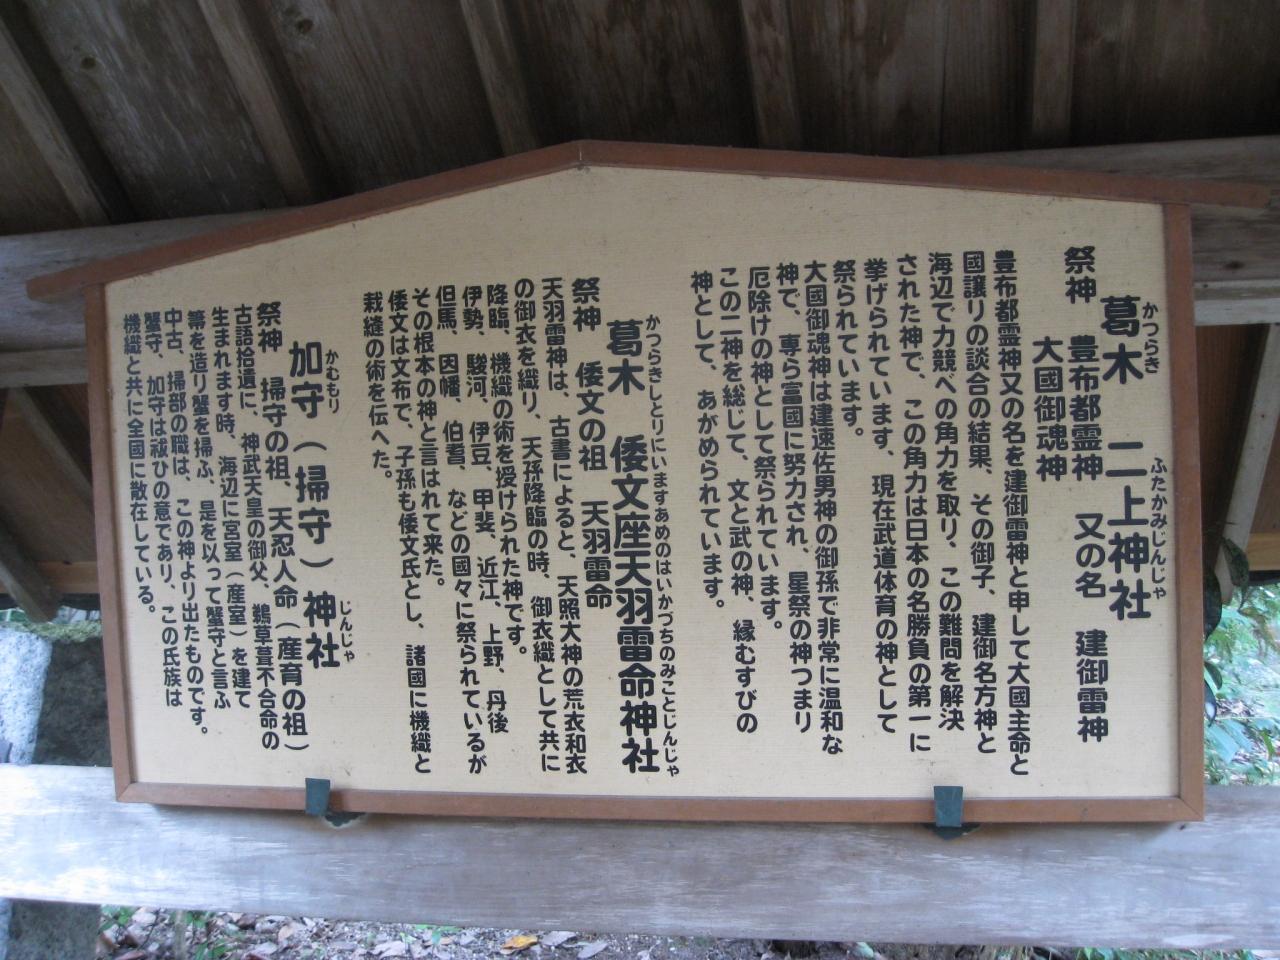 葛木 二上神社
かつらき ふたかみじんじゃ
祭神 豊布都霊神 又の名 建御雷神
大國御魂神
豊布都霊神又の名を建御雷神と申して大國主命と
國譲りの談合の結果、その御子、建御名方神と
海辺で力競べの角力を取り、この難問を解決
された神で、この角力は日本の名勝負の第一に
挙げられています、現在武道体育の神として
祭られています。
大國御魂神は建速佐男神の御孫で非常に温和な
神で、専ら富國に努力され、星祭の神つまり
厄除けの神として祭られています。
この二神を総じて、文と武の神、縁むすびの
神として、あがめられています。
葛木 倭文座天羽雷命神社
かつらきしとりにいますあめのはいかづちのみことじんじゃ
祭神 倭文の祖 天羽雷命
天羽雷神は、古書によると、天照大神の荒衣和衣
の御衣を織り、天孫降臨の時、御衣織として共に
降臨、機織の術を授けられた神です。
伊勢、駿河、伊豆、甲斐、近江、上野、丹後
但馬、因幡、伯耆、などの國々に祭られているが
その根本の神と言はれて来た。
倭文は文布で、子孫も倭文氏とし、諸國に機織と
栽縫の術を伝へた。
加守(掃守)神社
かむもり じんじゃ
祭神 掃守の祖、天忍人命(産育の祖)
古語拾遺に、神武天皇の御父、鵜草葺不合命の
生まれます時、海辺に宮室(産室)を建て
箒を造り蟹を掃ふ、是を以って蟹守と言ふ
中古、掃部の職は、この神より出たものです。
蟹守、加守は祓ひの意であり、この氏族は
機織と共に全国に散在している。